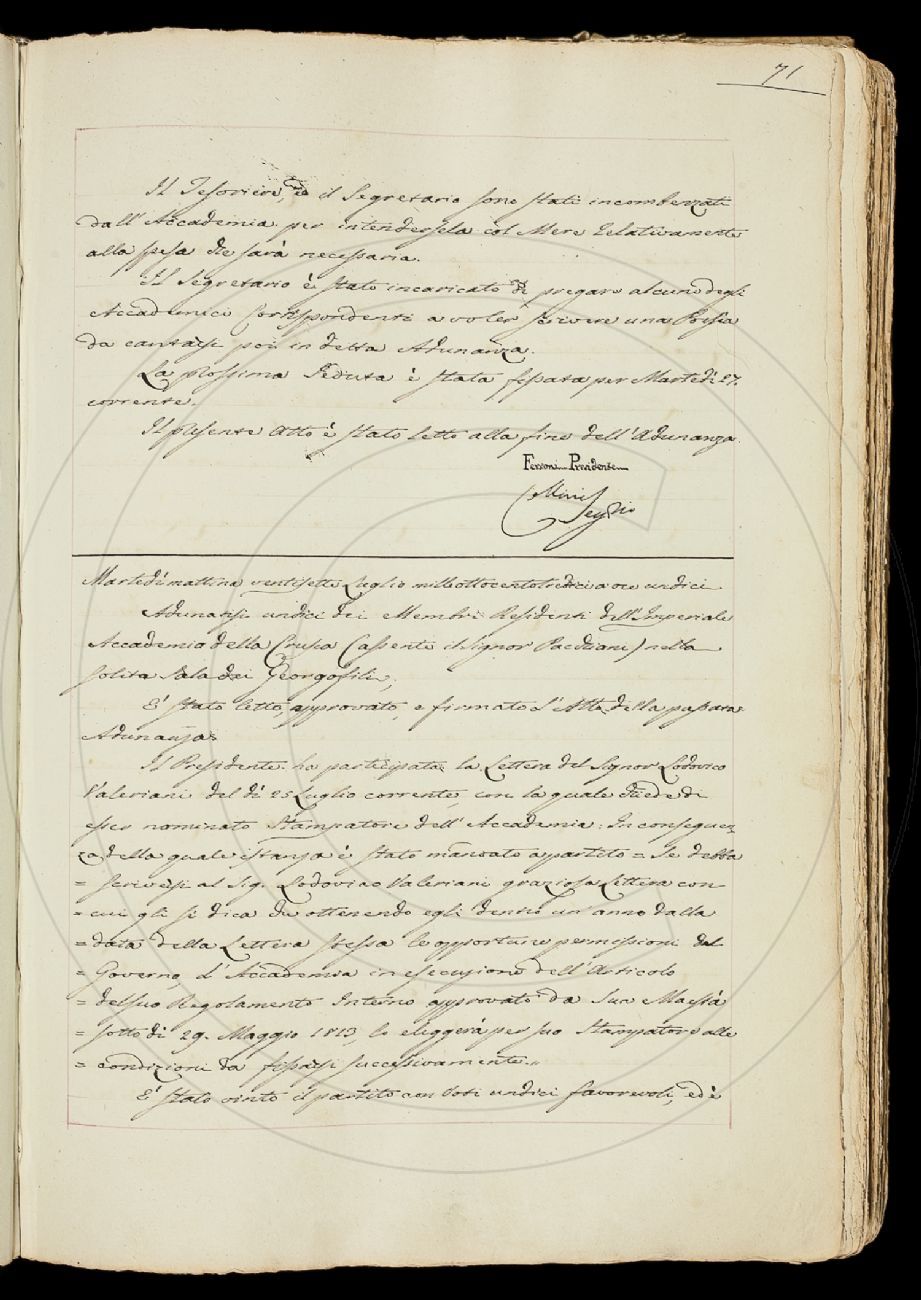 71
Il Tesoriere, e il Segretario sono stati incombenzati
dall'Accademia per intendersela col Mere relativamente
alla spesa che sarà necessaria.
Il Segretario è stato incaricato di pregare alcuno degli
Accademici Corrispondenti a voler scrivere una Poesia
da cantarsi poi in detta Adunanza.
La prossima Seduta è stata fissata per Martedì 27.
corrente.
Il presente Atto è stato letto alla fine dell'Adunanza.
Ferroni Presidente
Segrio
Martedì mattina ventisette Luglio milleottocentotredici a ore undici
Adunatisi undici dei Membri Residenti dell'Imperiale
Accademia della Crusca (assente il Signor) nella
solita Sala dei Georgofili,
E' stato letto, approvato, e firmato l'Atto della passata
Adunanza.
Il Presidente ha participata la Lettera del Signor Lodovico
Valeriani del dì 25 Luglio corrente, con la quale chiede di
esser nominato Stampatore dell'Accademia: In conseguen-
za della quale istanza è stato mandato a partito = Se debba
= scriversi al Sig. Lodovico Valeriani graziosa Lettera con
= cui gli si dica che ottenendo egli dentro un anno dalla
= data della Lettera stessa le opportune permessioni del
= Governo, l'Accademia in esecuzione dell'Articolo
= del suo Regolamento Interno approvato da Sua Maestà
= sotto dì 29. Maggio 1813, lo eleggerà per suo Stampatore alle
= condizioni da fissarsi successivamente.,,
E' stato vinto il partito con Voti undici favorevoli, ed è